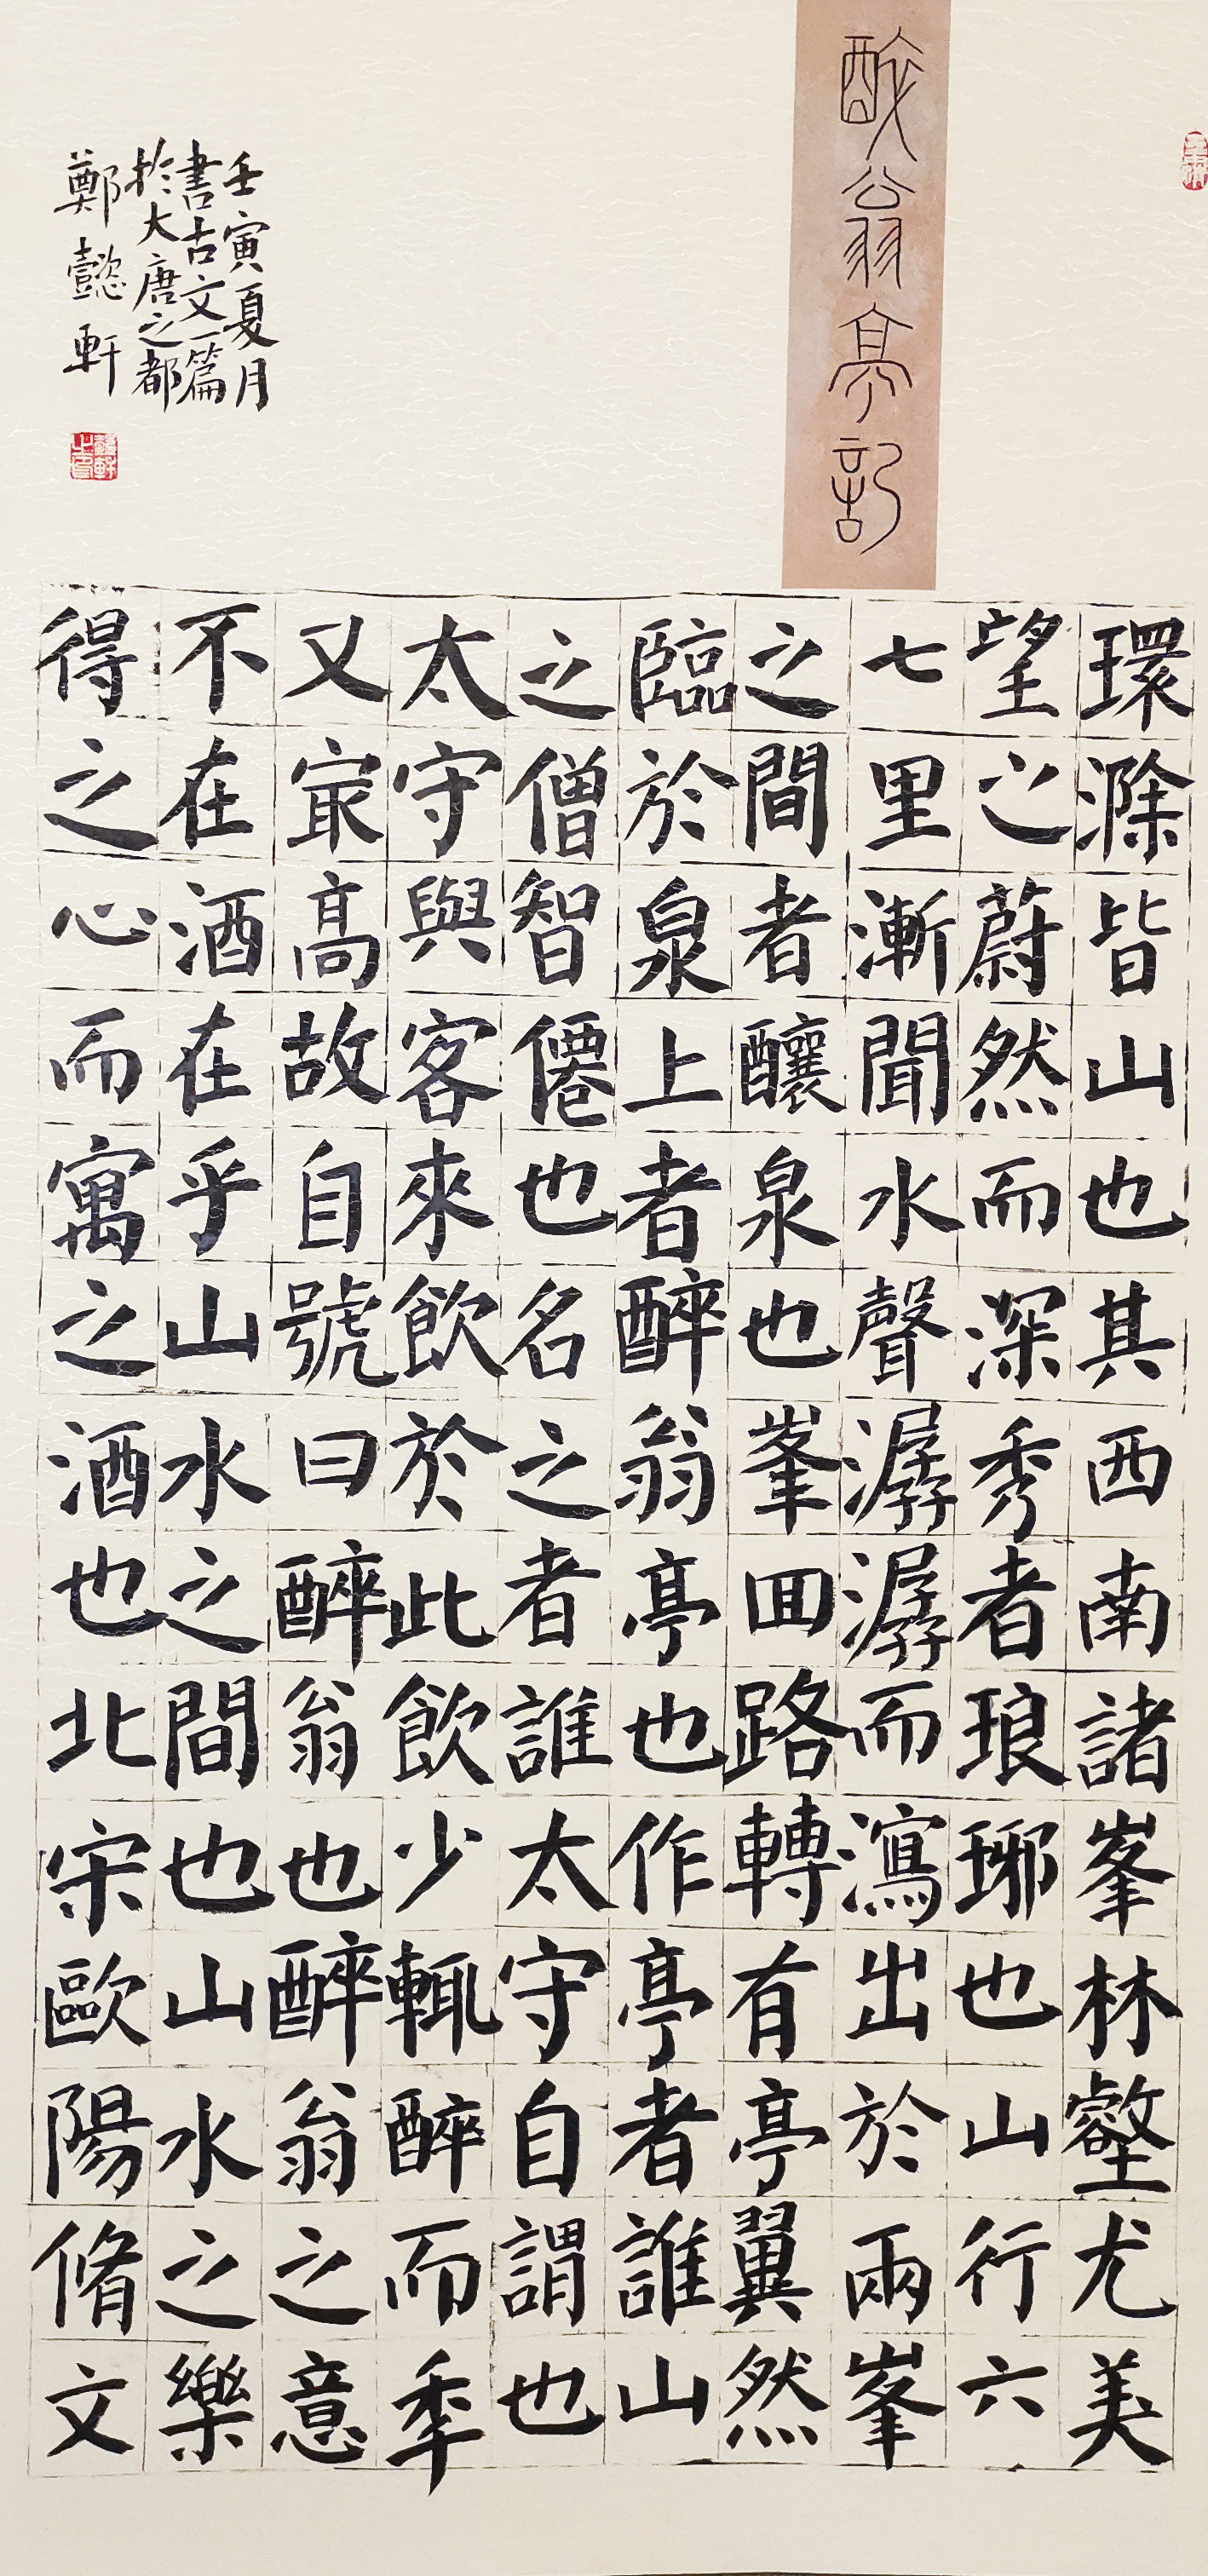 醉翁亭記
環滁皆山也其西南諸峯林壑尤美
望之蔚然而深秀者琅琊也山行六
七里漸聞水聲潺潺而瀉出於兩峯
之間者釀泉也峯回路轉有亭翼然
臨於泉上者醉翁亭也作亭者誰山
之僧智僊也名之者誰太守自謂也
太守與客來飲於此飲少輒醉而年
又冣高故自號曰醉翁也醉翁之意
不在酒在乎山水之間也山水之樂
得之心而寓之酒也北宋歐陽脩文
壬寅夏月
書古文一篇
於大唐之都
鄭懿軒